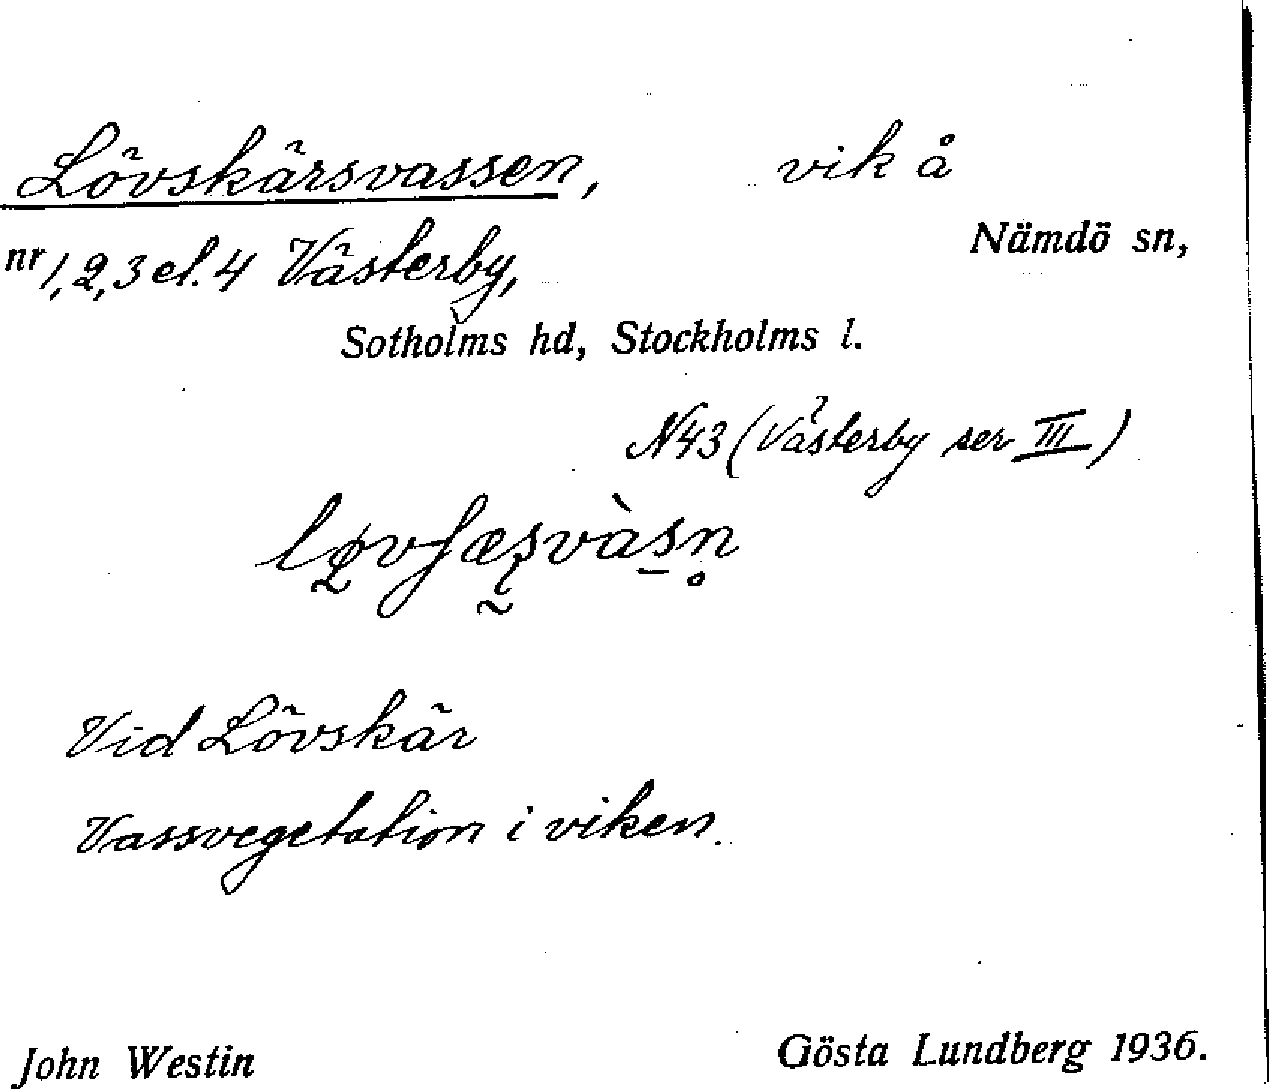 Lövskärsvassen, vik å
Nämdö sn,
nr 1, 2, 3 el. 4 Västerby,
Sotholms hd, Stockholms l.
N43 (Västerby ser III)
Vid Lövskär
Vassvegetation i viken.
John Westin Gösta Lundberg 1936.